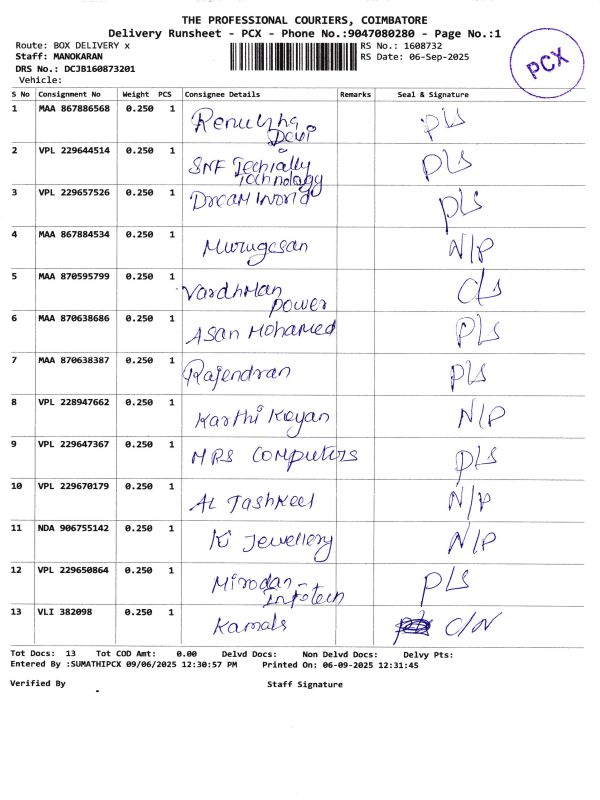 THE PROFESSIONAL COURIERS, COIMBATORE
Delivery Runsheet - PCX - Phone No.:9047080280 - Page No.:1
Route: BOX DELIVERY x RS No.: 1608732
Staff: MANOKARAN RS Date: 06-Sep-2025
DRS No.: DCJB160873201
Vehicle:
PCX
S No Consignment No Weight PCS Consignee Details Remarks Seal & Signature
1 MAA 867886568 0.250 1 Renugha Devi PLS
2 VPL 229644514 0.250 1 SNF Techially Technology PLS
3 VPL 229657526 0.250 1 Dream World PLS
4 MAA 867884534 0.250 1 Murugesan N/P
5 MAA 870595799 0.250 1 Vardhman power C/S
6 MAA 870638686 0.250 1 Asan Mohamed PLS
7 MAA 870638387 0.250 1 Rajendran PLS
8 VPL 228947662 0.250 1 Karthi Keyan N/P
9 VPL 229647367 0.250 1 MRS Computers PLS
10 VPL 229670179 0.250 1 AL Tashkeel N/P
11 NDA 906755142 0.250 1 Ki Jewellery N/P
12 VPL 229650864 0.250 1 Mirodan - Infotech PLS
13 VLI 382098 0.250 1 Kamals C/N
Tot Docs: 13 Tot COD Amt: 0.00 Delvd Docs: Non Delvd Docs: Delvy Pts:
Entered By :SUMATHIPCX 09/06/2025 12:30:57 PM Printed On: 06-09-2025 12:31:45
Verified By Staff Signature